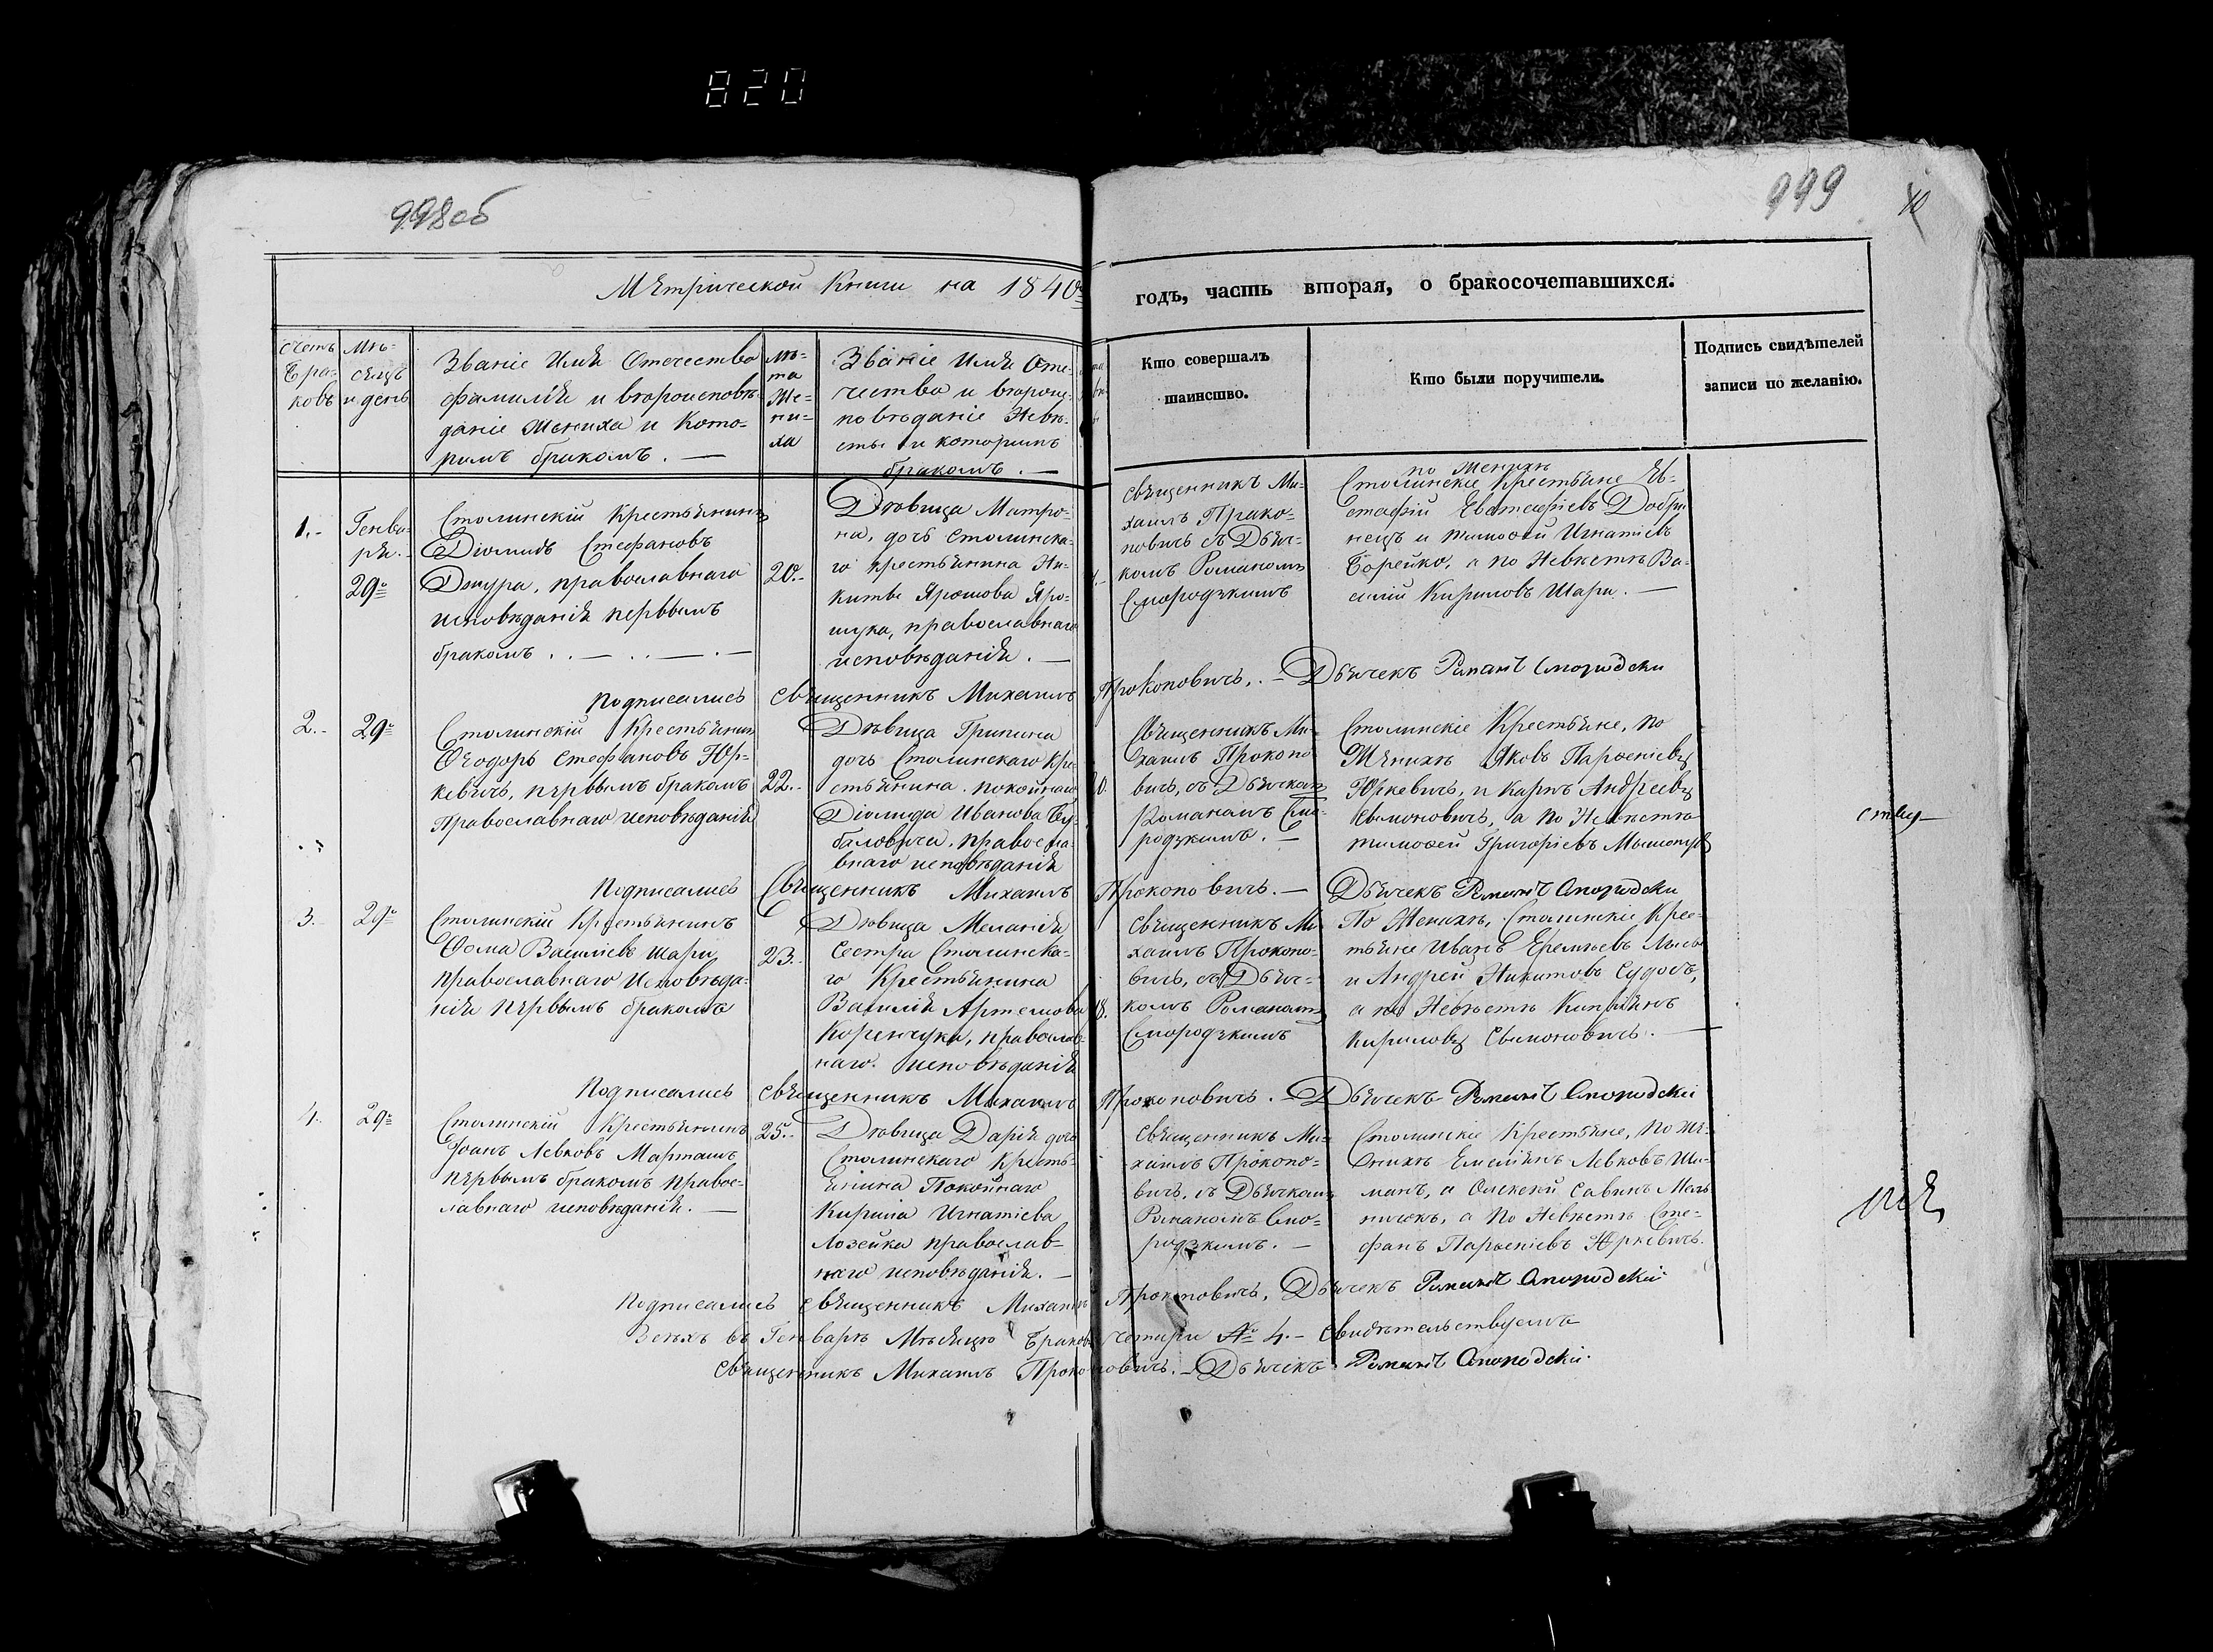 820
998об
999
40
Метрической Книги на 1840й
годъ, часть вторая, о бракосочетавшихся.
Счетъ
Бра-
ковъ
Мѣ-
сяцъ
и день
Званіе Имя Отечество
фамилія и вѣроисповѣ-
даніе Жениха и Кото-
рымъ бракомъ. —
Лѣ-
та
Же-
ни-
ха
Званіе Имя Оте-
чество и вѣроис-
повѣданіе Невѣ-
сты и которымъ
бракомъ. —
Кто совершалъ
таинство.
Кто были поручители.
Подпись свидѣтелей
записи по желанію.
1.-
Генва-
ря.-
29е
Столинскій Крестьянинъ
Діомидъ Стефановъ
Дацура, православнаго
исповѣданія первымъ
бракомъ . . — . . — . —
20.-
Дѣвица Матро-
на, дочь Столинска-
го крестьянина Ни-
киты Ярошова Яро-
шука, православнаго
исповѣданія. —
Священникъ Ми-
хаилъ Проко-
повичь съ Дьяч-
комъ Романомъ
Смородзкимъ
по Женихѣ
Столинскіе Крестьяне Ев-
стафій Евстафіевъ Добри
нецъ и Тимофей Игнатіевъ
Борейко, а по Невѣстѣ Ва-
силій Кириловъ Шари. —
Подписались Священникъ Михаилъ Прокоповичь. – Дьячекъ Романъ Смородски
2.-
29е
Столинскій Крестьянинъ
Ѳеодоръ Стефановъ Юр-
кевичь, первымъ бракомъ
Православнаго исповѣданія
22.-
Дѣвица Грипина
дочь Столинскаго Кре-
стьянина покойнаго
Діомида Иванова Бу-
баловича, правосла-
внаго исповѣданія
Священникъ Ми-
хаилъ Прокопо
вичь, съ Дьячкомъ
Романомъ Смо-
родзкимъ. —
Столинскіе Крестьяне, по
Женихѣ Яковъ Парфеніевъ
Юркевичь, и Карпъ Андреевъ
Свмоновичь, а по Невѣстѣ
Тимофей Григоріевъ
Подписались Священникъ Михаилъ Прокоповичь. — Дьячекъ Романъ Смородски
3.-
29е
Столинскій Крестьянинъ
Ѳома Василіевъ Шари,
православнаго Исповѣда-
нія первымъ бракомъ
23.-
Дѣвица Меланія
Сестра Столинска-
го Крестьянина
Василія Артемова
Коренчука, православ-
наго. исповѣданія
18.
Священникъ Ми
хаилъ Прокопо-
вичь, съ Дьяч-
комъ Романомъ
Смородзкимъ
По Женихѣ, Столинскіе Крес-
тьяне Иванъ Еремѣевъ
и Андрей Никитовъ Судосъ,
а по Невѣстѣ Кипріянъ
Кириловъ Свмоновичь. —
Подписались Священникъ Михаилъ Прокоповичь. – Дьячекъ Романъ Смородскій
4.
29е
Столинскій Крестьянинъ
Іоанъ Левковъ Марташъ
первымъ бракомъ правос-
лавнаго исповѣданія. —
25.-
Дѣвица Дарія дочь
Столинскаго Кресть-
янина Покойнаго
Кирила Игнатіева
Лозейка православ-
наго исповѣданія. —
Священникъ Ми-
хаилъ Прокопо-
вичь, съ Дьячкомъ
Романомъ Смо-
родзкимъ. —
Столинскіе Крестьяне, по Же-
нихѣ Емеліянъ Левковъ Ши-
манъ, а Олексей Савинъ Мель
ничокъ, а по Невѣстѣ Сте-
фанъ Парфеніевъ Юркевичь.
Подписались Священникъ Михаилъ Прокоповичь, Дьячекъ Романъ Смородскій
Всѣхъ въ Генварѣ Мѣсяцѣ Браковъ четыри № 4.– Свидѣтельствуемъ
Священникъ Михаилъ Прокоповичь. – Дьячекъ Романъ Смородскій.